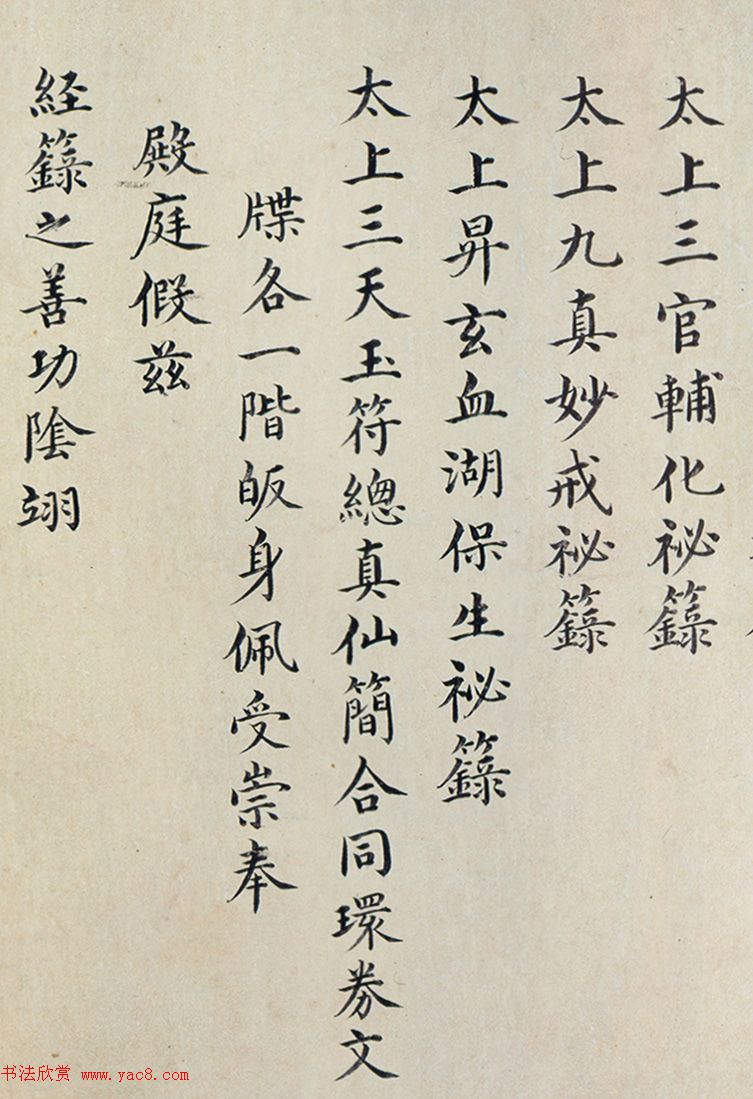 太上三官輔化祕籙
太上九真妙戒祕籙
太上昇玄血湖保生祕籙
太上三天玉符總真仙簡合同環券文
牒各一階皈身佩受崇奉
殿庭假茲
経籙之善功陰翊
书法欣赏 www.yac8.com